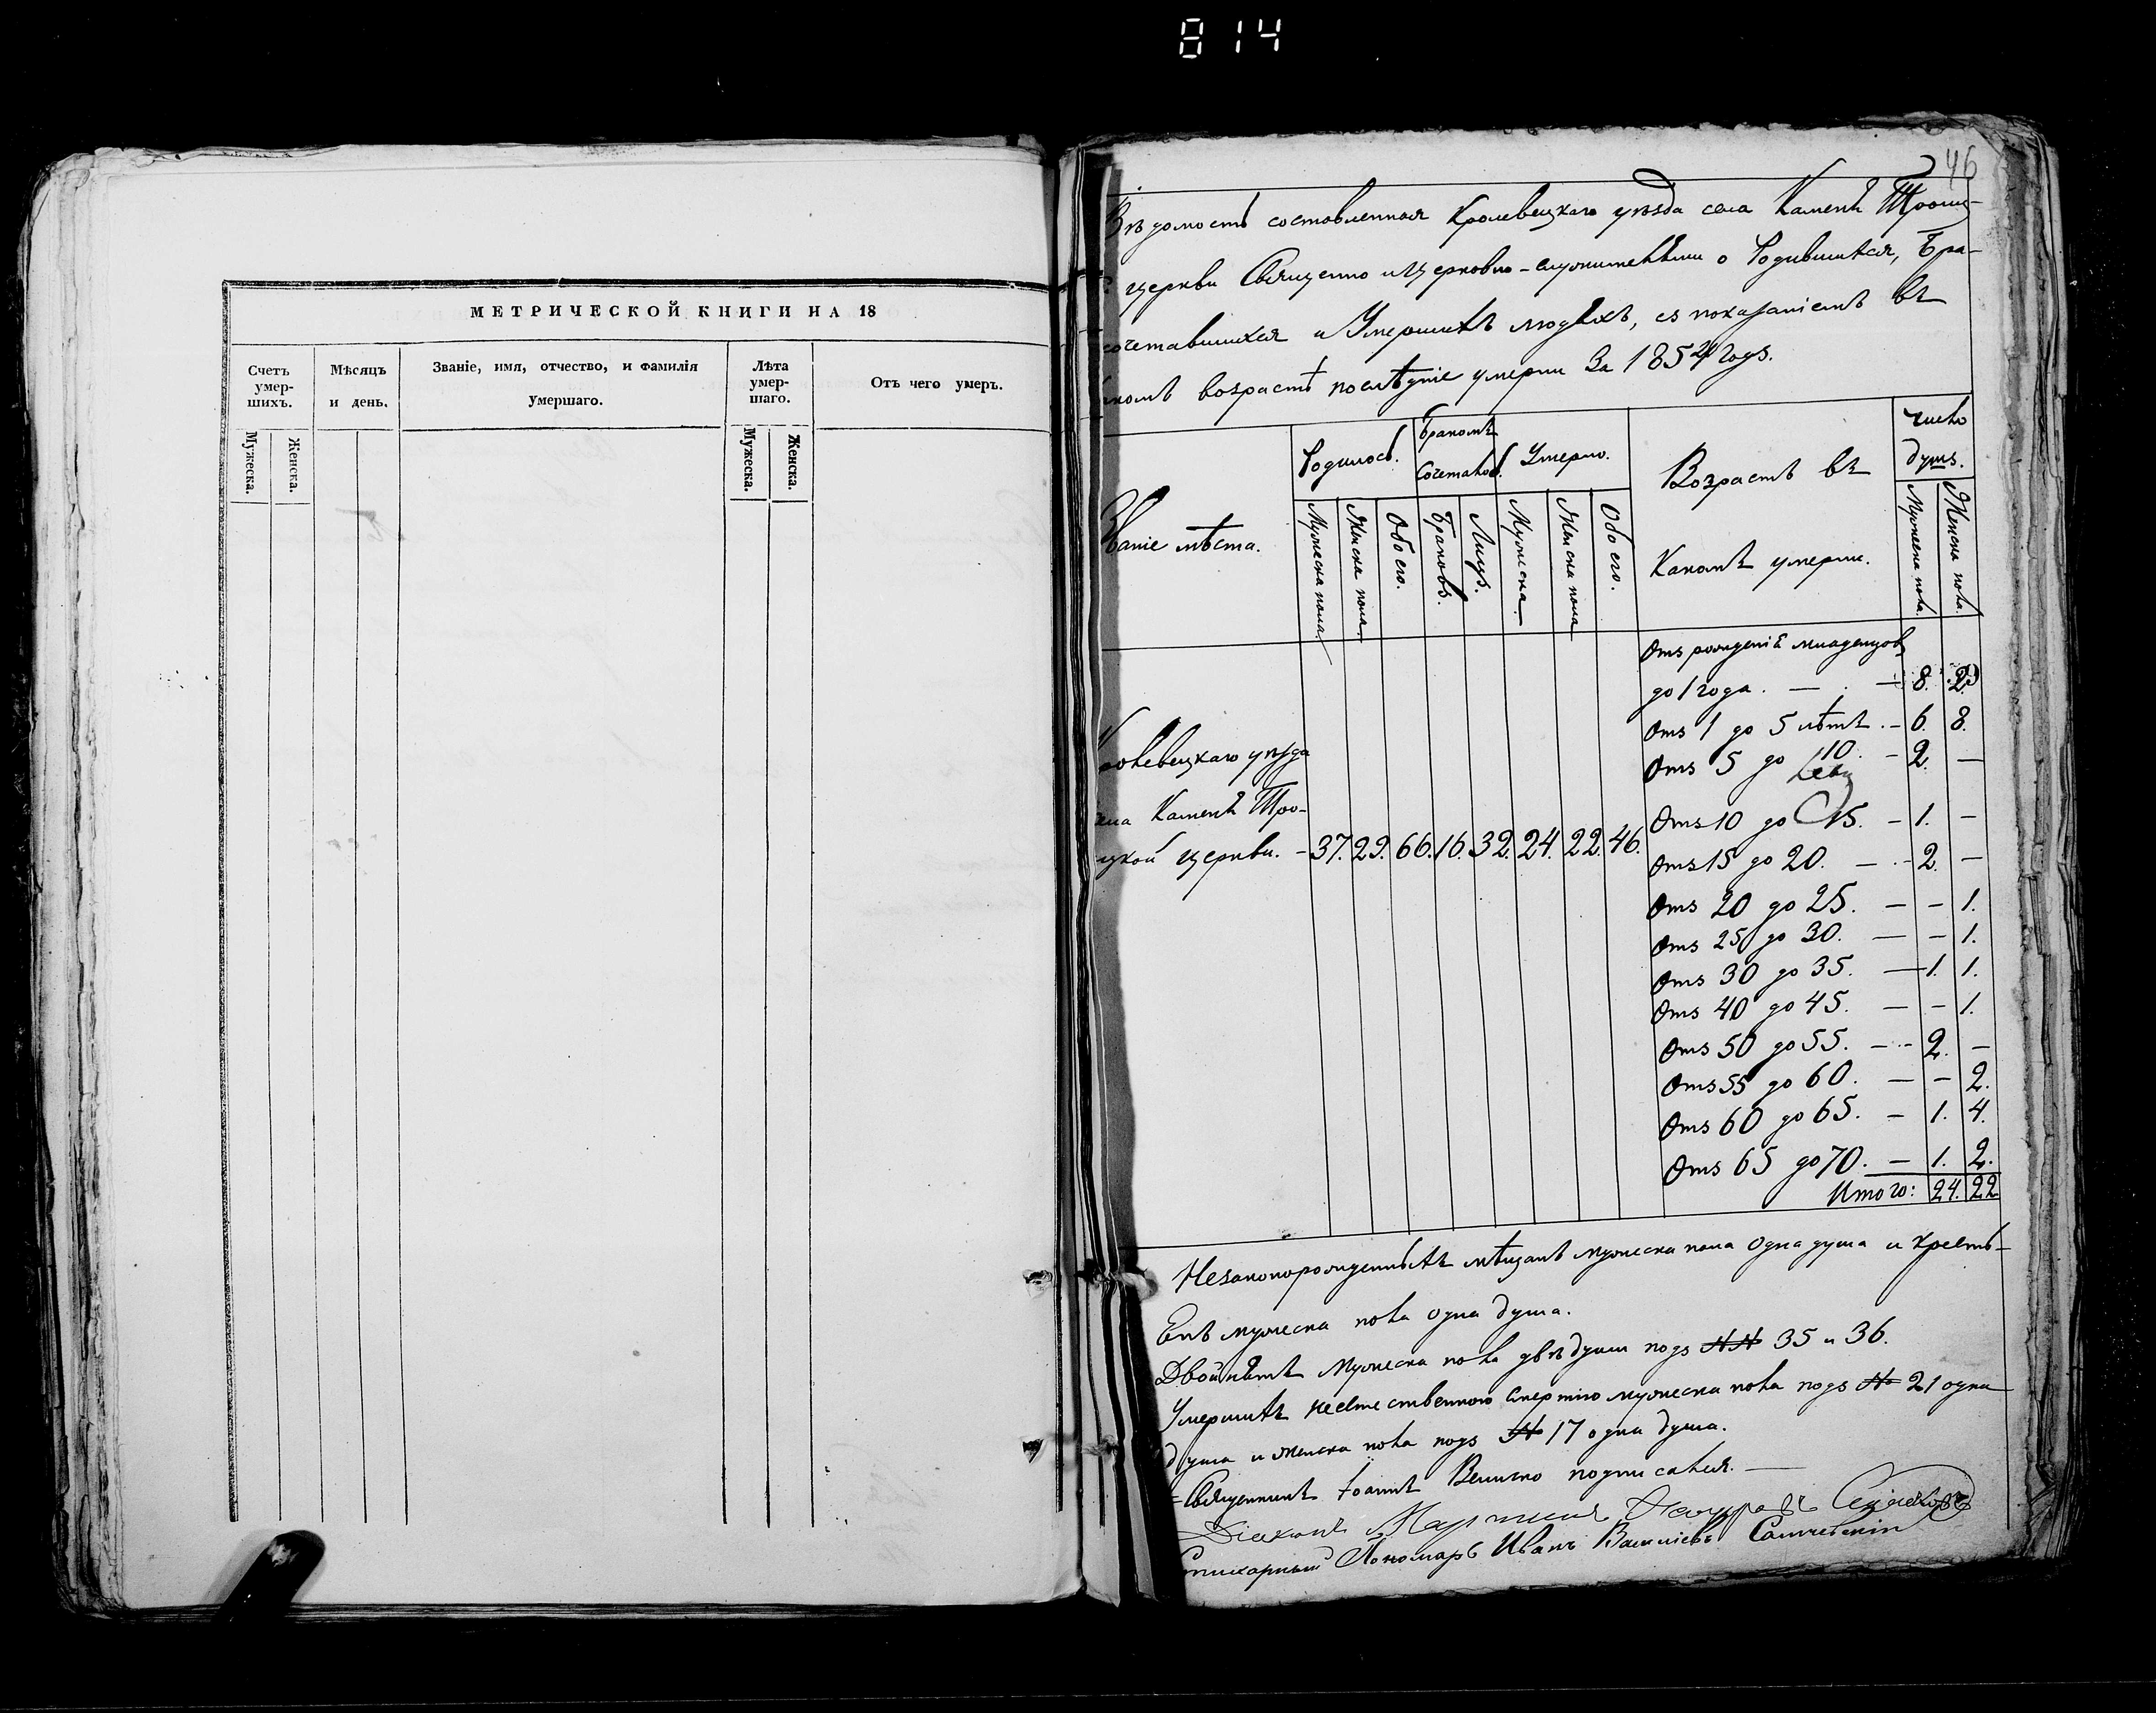 814
МЕТРИЧЕСКОЙ КНИГИ НА 18
Счетъ умерших.
Мѣсяцъ и день.
Званіе, имя, отчество, и фамилія умершаго.
Лѣта умершаго.
Отъ чего умеръ.
Мужеска. Женска.
Мужеска. Женска.
46
Вѣдомость составленная Кролевецкаго уѣзда села Камень Троиц-
церкви Священно и Церковно-служителями о Родившихся, Бра-
сочетавшихся и Умершихъ людяхъ, съ показаніемъ въ
возрастѣ послѣдніе умерли за 1854 годъ.
Званіе мѣста.
Родилось.
Бракомъ Сочеталось.
Умерло.
Возрастъ въ
Какомъ умерли.
число
душъ.
Мужеска пола Женска пола Обоего. Браковъ. Лицъ. Мужеска Женска пола Обоего.
Мужеска пола. Женска пола.
Отъ рожденія младенцовъ
до 1 года. — 8. 2.
Отъ 1 до 5 лѣтъ. – 6. 8.
Отъ 5 до 10. – 2. —
Отъ 10 до 15. – 1. –
Отъ 15 до 20. — 2. –
Отъ 20 до 25. — – 1.
Отъ 25 до 30. — – 1.
Отъ 30 до 35. — 1. 1.
Отъ 40 до 45. — – 1.
Отъ 50 до 55. — 2. –
Отъ 55 до 60. — – 2.
Отъ 60 до 65. – 1. 4.
Отъ 65 до 70. — 1. 2.
Итого: 24. 22
Кролевецкаго уѣзда
села Камень Тро-
ицкой церкви. – 37. 29. 66. 16. 32. 24. 22. 46.
Незаконорожденныхъ мѣщанъ мужеска пола одна душа и крестья-
Енъ мужеска пола одна душа.
Двойнятъ мужеска пола двѣ души подъ №№ 35 и 36.
Умершихъ неестественною смертію мужеска пола подъ № 21 одна
душа и женска пола подъ № 17 одна душа.
Священникъ Іоаннъ Величко подписался. —
Діаконъ
Стихарный Пономарь Иванъ Василіевъ